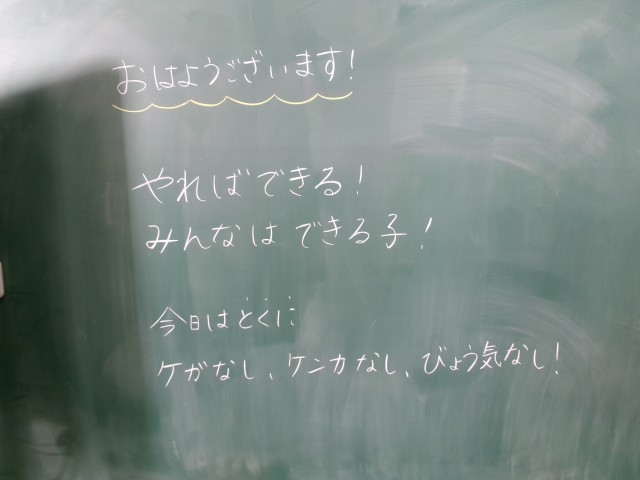 おはようございます!
やればできる!
みんなはできる子!
今日はとくに
ケガなし、ケンカなし、びょう気なし!